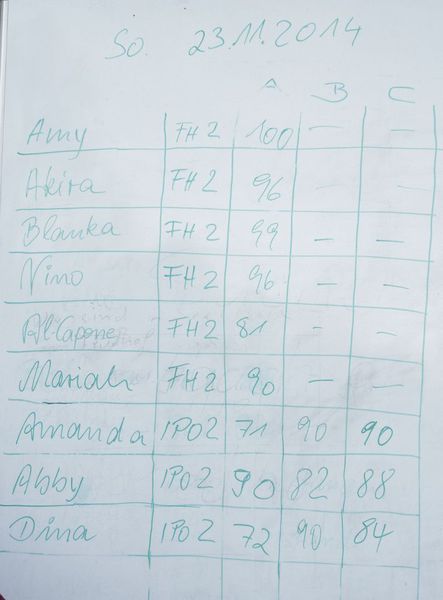 So. 23.11.2014
A B C
Amy FH2 100 — —
Akira FH2 96 - -
Blanka FH2 99 — —
Nino FH2 96 — —
Al-Capone FH2 81 - -
Mariah FH2 90 — —
Amanda IPO2 71 90 90
Abby IPO2 90 82 88
Dina IPO2 72 90 84